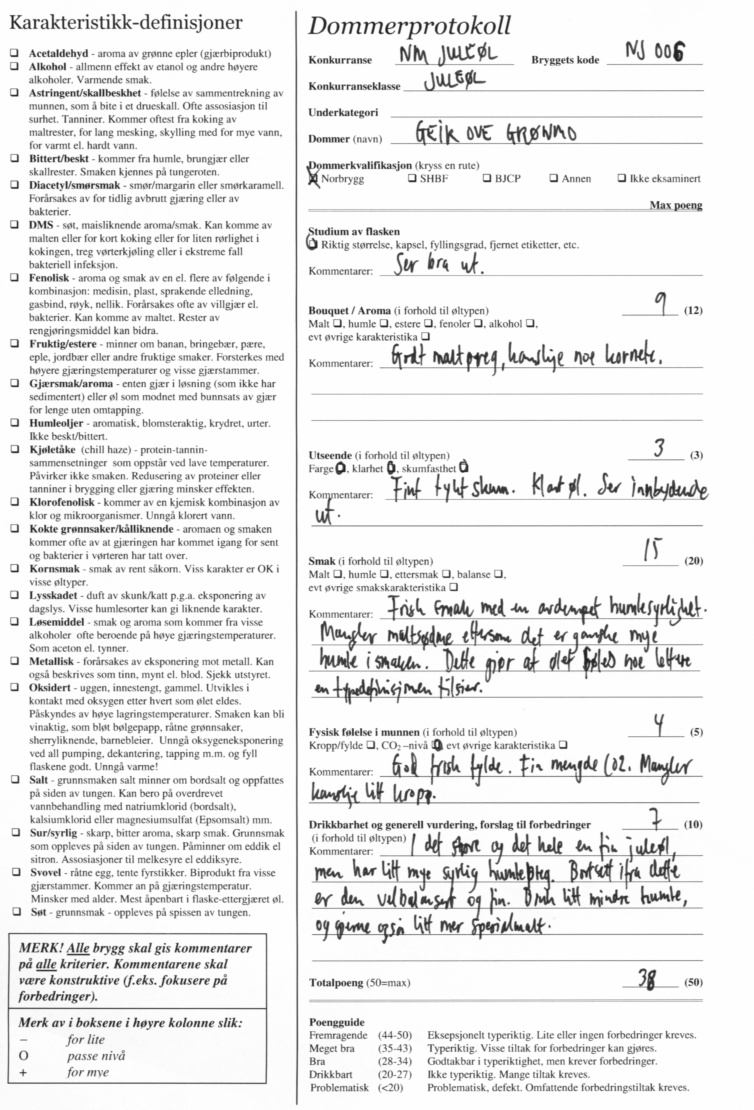 Karakteristikk-definisjoner
❑ Acetaldehyd - aroma av grønne epler (gjærbiprodukt)
❑ Alkohol - allmenn effekt av etanol og andre høyere
alkoholer. Varmende smak.
❑ Astringent/skallbeskhet - følelse av sammentrekning av
munnen, som å bite i et drueskall. Ofte assosiasjon til
surhet. Tanniner. Kommer oftest fra koking av
maltrester, for lang mesking, skylling med for mye vann,
for varmt el. hardt vann.
❑ Bittert/beskt - kommer fra humle, brungjær eller
skallrester. Smaken kjennes på tungeroten.
❑ Diacetyl/smørsmak - smør/margarin eller smørkaramell.
Forårsakes av for tidlig avbrutt gjæring eller av
bakterier.
❑ DMS - søt, maisliknende aroma/smak. Kan komme av
malten eller for kort koking eller for liten rørlighet i
kokingen, treg vørterkjøling eller i ekstreme fall
bakteriell infeksjon.
❑ Fenolisk - aroma og smak av en el. flere av følgende i
kombinasjon: medisin, plast, sprakende elledning,
gasbind, røyk, nellik. Forårsakes ofte av villgjær el.
bakterier. Kan komme av maltet. Rester av
rengjøringsmiddel kan bidra.
❑ Fruktig/estere - minner om banan, bringebær, pære,
eple, jordbær eller andre fruktige smaker. Forsterkes med
høyere gjæringstemperaturer og visse gjærstammer.
❑ Gjærsmak/aroma - enten gjær i løsning (som ikke har
sedimentert) eller øl som modnet med bunnsats av gjær
for lenge uten omtapping.
❑ Humleoljer - aromatisk, blomsteraktig, krydret, urter.
Ikke beskt/bittert.
❑ Kjøletåke (chill haze) - protein-tannin-
sammensetninger som oppstår ved lave temperaturer.
Påvirker ikke smaken. Redusering av proteiner eller
tanniner i brygging eller gjæring minsker effekten.
❑ Klorofenolisk - kommer av en kjemisk kombinasjon av
klor og mikroorganismer. Unngå klorert vann.
❑ Kokte grønnsaker/kålliknende - aromaen og smaken
kommer ofte av at gjæringen har kommet igang for sent
og bakterier i vørteren har tatt over.
❑ Kornsmak - smak av rent såkorn. Viss karakter er OK i
visse øltyper.
❑ Lysskadet - duft av skunk/katt p.g.a. eksponering av
dagslys. Visse humlesorter kan gi liknende karakter.
❑ Løsemiddel - smak og aroma som kommer fra visse
alkoholer ofte beroende på høye gjæringstemperaturer.
Som aceton el. tynner.
❑ Metallisk - forårsakes av eksponering mot metall. Kan
også beskrives som tinn, mynt el. blod. Sjekk utstyret.
❑ Oksidert - uggen, innestengt, gammel. Utvikles i
kontakt med oksygen etter hvert som ølet eldes.
Påskyndes av høye lagringstemperaturer. Smaken kan bli
vinaktig, som bløt bølgepapp, råtne grønnsaker,
sherryliknende, barnebleier. Unngå oksygeneksponering
ved all pumping, dekantering, tapping m.m. og fyll
flaskene godt. Unngå varme!
❑ Salt - grunnsmaken salt minner om bordsalt og oppfattes
på siden av tungen. Kan bero på overdrevet
vannbehandling med natriumklorid (bordsalt),
kalsiumklorid eller magnesiumsulfat (Epsomsalt) mm.
❑ Sur/syrlig - skarp, bitter aroma, skarp smak. Grunnsmak
som oppleves på siden av tungen. Påminner om eddik el
sitron. Assosiasjoner til melkesyre el eddiksyre.
❑ Svovel - råtne egg, tente fyrstikker. Biprodukt fra visse
gjærstammer. Kommer an på gjæringstemperatur.
Minsker med alder. Mest åpenbart i flaske-ettergjæret øl.
❑ Søt - grunnsmak - oppleves på spissen av tungen.
MERK! Alle brygg skal gis kommentarer
på alle kriterier. Kommentarene skal
være konstruktive (f.eks. fokusere på
forbedringer).
Merk av i boksene i høyre kolonne slik:
– for lite
O passe nivå
+ for mye
Dommerprotokoll
Konkurranse NM JULEØL Bryggets kode NJ 006
Konkurranseklasse JULEØL
Underkategori
Dommer (navn) GEIR OVE GRØNMO
Dommerkvalifikasjon (kryss en rute)
☒ Norbrygg ❑ SHBF ❑ BJCP ❑ Annen ❑ Ikke eksaminert
Max poeng
Studium av flasken
O Riktig størrelse, kapsel, fyllingsgrad, fjernet etiketter, etc.
Kommentarer: Ser bra ut.
Bouquet / Aroma (i forhold til øltypen) 9 (12)
Malt ❑, humle ❑, estere ❑, fenoler ❑, alkohol ❑,
evt øvrige karakteristika ❑
Kommentarer: Godt maltpreg, kanskje noe kornete.
Utseende (i forhold til øltypen) 3 (3)
Farge O, klarhet O, skumfasthet O
Kommentarer: Fint tykt skum. Klart øl. Ser innbydende
ut.
Smak (i forhold til øltypen) 15 (20)
Malt ❑, humle ❑, ettersmak ❑, balanse ❑,
evt øvrige smakskarakteristika ❑
Kommentarer: Frisk smak med en avdempet humlesyrlighet.
Mangler maltsødme ettersom det er ganske mye
humle i smaken. Dette gjør at ølet føles noe lettere
en typedefinisjonen tilsier.
Fysisk følelse i munnen (i forhold til øltypen) 4 (5)
Kropp/fylde ❑, CO2 –nivå O, evt øvrige karakteristika ❑
Kommentarer: God frisk fylde. Fin mengde CO2. Mangler
kanskje litt kropp.
Drikkbarhet og generell vurdering, forslag til forbedringer 7 (10)
(i forhold til øltypen)
Kommentarer: I det store og det hele en fin juleøl,
men har litt mye syrlig humlepreg. Bortsett ifra dette
er den velbalansert og fin. Bruk litt mindre humle,
og gjerne også litt mer spesialmalt.
Totalpoeng (50=max) 38 (50)
Poengguide
Fremragende (44-50) Eksepsjonelt typeriktig. Lite eller ingen forbedringer kreves.
Meget bra (35-43) Typeriktig. Visse tiltak for forbedringer kan gjøres.
Bra (28-34) Godtakbar i typeriktighet, men krever forbedringer.
Drikkbart (20-27) Ikke typeriktig. Mange tiltak kreves.
Problematisk (<20) Problematisk, defekt. Omfattende forbedringstiltak kreves.